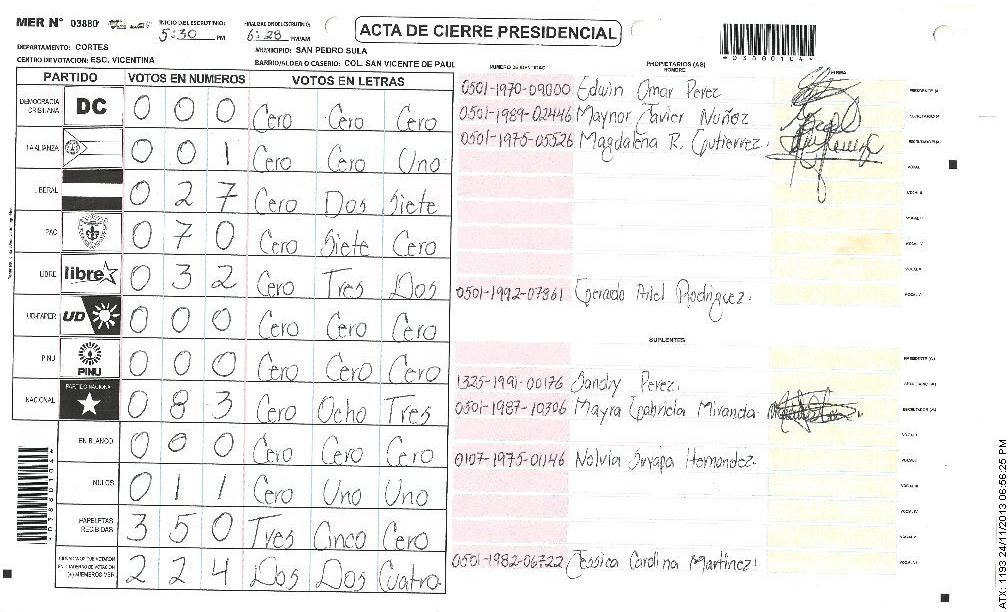 MER Nº 03880
INICIO DEL ESCRUTINIO: 5:30 PM
FINALIZACION DEL ESCRUTINIO: 6:28 PM/AM
ACTA DE CIERRE PRESIDENCIAL
*03880104*
DEPARTAMENTO: CORTES
MUNICIPIO: SAN PEDRO SULA
CENTRO DE VOTACION: ESC. VICENTINA
BARRIO/ALDEA O CASERIO: COL. SAN VICENTE DE PAUL
PARTIDO VOTOS EN NUMEROS VOTOS EN LETRAS
DEMOCRACIA CRISTIANA DC 0 0 0 Cero Cero Cero
LA ALIANZA 0 0 1 Cero Cero Uno
LIBERAL 0 2 7 Cero Dos Siete
PAC 0 7 0 Cero Siete Cero
LIBRE libre 0 3 2 Cero Tres Dos
UD-FAPER UD 0 0 0 Cero Cero Cero
PINU PINU 0 0 0 Cero Cero Cero
NACIONAL PARTIDO NACIONAL 0 8 3 Cero Ocho Tres
EN BLANCO 0 0 0 Cero Cero Cero
NULOS 0 1 1 Cero Uno Uno
PAPELETAS RECIBIDAS 3 5 0 Tres Cinco Cero
2 2 4 Dos Dos Cuatro
NUMERO DE IDENTIDAD PROPIETARIOS (AS) NOMBRE FIRMA
0501-1970-09000 Edwin Omar Perez PRESIDENTE (A)
0501-1989-02446 Maynor Javier Nuñez SECRETARIO (A)
0501-1975-05526 Magdalena R. Gutierrez. ESCRUTADOR (A)
VOCAL I
VOCAL II
VOCAL III
VOCAL IV
VOCAL V
0501-1992-07361 Gerardo Ariel Rodriguez.
SUPLENTES
PRESIDENTE (A)
1325-1991-00176 Sandry Perez. SECRETARIO (A)
0501-1987-10306 Mayra Gabriela Miranda ESCRUTADOR (A)
VOCAL I
0107-1975-01146 Nolvia Suyapa Hernandez. VOCAL II
VOCAL III
VOCAL IV
VOCAL V
0501-1982-06722 Jessica Carolina Martinez.
*03880104*
ATX: 1193 24/11/2013 06:56:25 PM